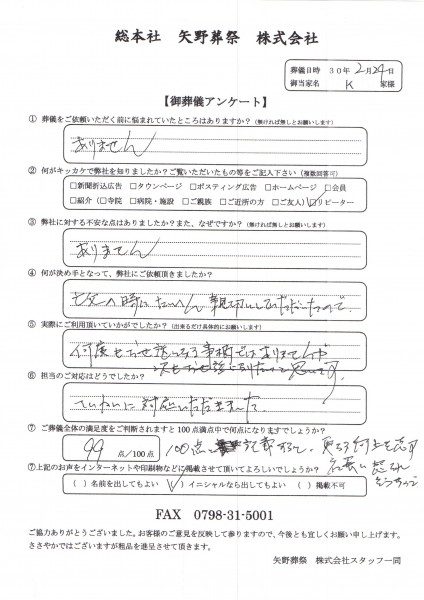 総本社 矢野葬祭 株式会社
葬儀日時 30年2月24日
御当家名 K 家様
【御葬儀アンケート】
① 葬儀をご依頼いただく前に悩まれていたところはありますか? (無ければ無しとお願いします)
ありません
② 何がキッカケで弊社を知りましたか?ご覧いただいたもの等をご記入下さい (複数回答可)
□新聞折込広告 □タウンページ □ポスティング広告 □ホームページ □会員
□紹介 (□寺院 □病院・施設 □ご親族 □ご近所の方 □ご友人) ☑リピーター
③ 弊社に対する不安な点はありましたか?また、なぜですか? (無ければ無しとお願いします)
ありません
④ 何が決め手となって、弊社にご依頼頂きましたか?
亡父の時にたいへん親切にしていただいたので。
⑤ 実際にご利用頂いていかがでしたか? (出来るだけ具体的にお願いします)
何度もお世話になる事柄ではありませんが
次もお世話になりたいと思います。
⑥ 担当のご対応はどうでしたか?
ていねいに対応いただきました
⑦ ご葬儀全体の満足度をご判断されますと100点満点中で何点になりますでしょうか?
99 点/100点 100点
⑦上記のお声をインターネットや印刷物などに掲載させて頂いてよろしいでしょうか?
( ) 名前を出してもよい (✓) イニシャルなら出してもよい ( ) 掲載不可
FAX 0798-31-5001
ご協力ありがとうございました。お客様のご意見を反映して参りますので、今後とも宜しくお願い申し上げます。
ささやかではございますが粗品を進呈させて頂きます。
矢野葬祭 株式会社スタッフ一同